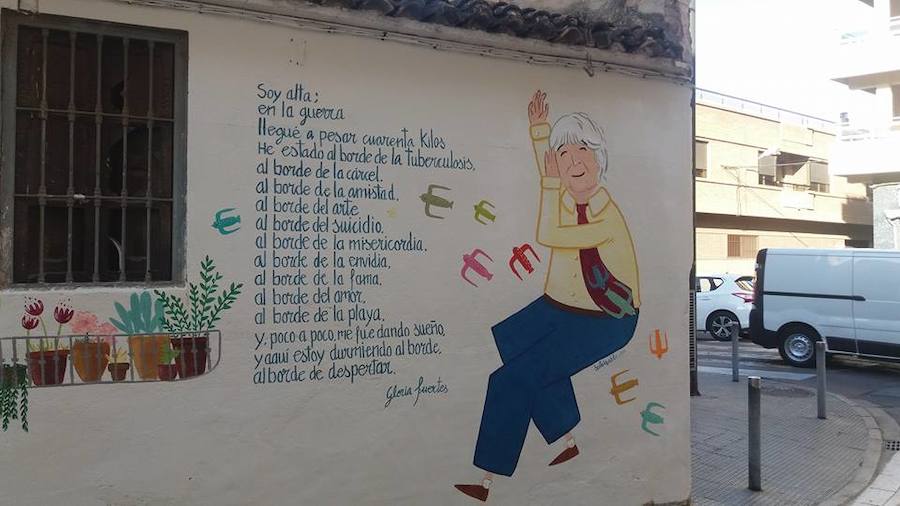 Soy alta;
en la guerra
llegué a pesar cuarenta Kilos
He estado al borde de la Tuberculosis,
al borde de la cárcel,
al borde de la amistad,
al borde del arte
al borde del suicidio,
al borde de la misericordia,
al borde de la envidia,
al borde de la fama,
al borde del amor,
al borde de la playa,
y, poco a poco, me fue dando sueño,
y aquí estoy durmiendo al borde,
al borde de despertar.
Gloria fuertes